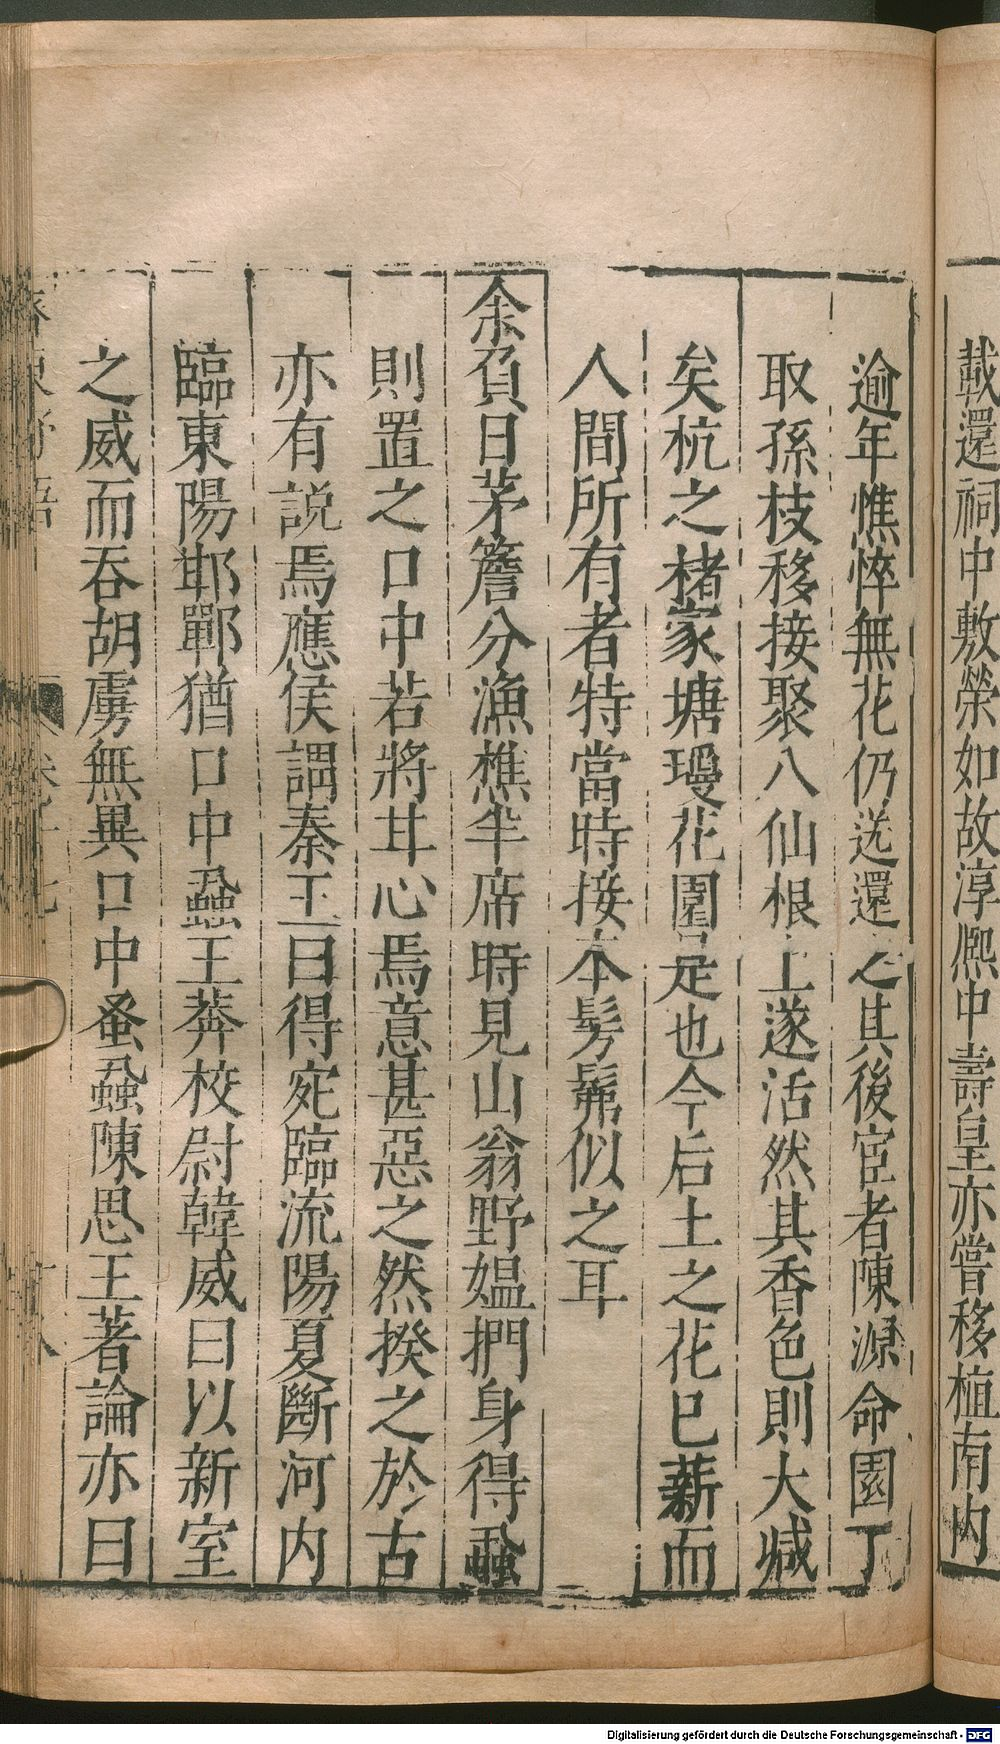 載還祠中敷榮如故淳熈中壽皇亦嘗移植南内
逾年憔悴無花仍送還之其後宦者陳源命園丁
取孫枝移接聚八仙根上遂活然其香色則大減
矣杭之楮家塘瓊花園是也今后土之花已薪而
人間所有者特當時接本髣髴似之耳
余負日茅簷分漁樵半席時見山翁野媼捫身得蝨
則置之口中若將甘心焉意甚惡之然揆之於古
亦有説焉應侯謂秦王曰得宛臨流陽夏斷河内
臨東陽邯鄲猶口中蝨王莽校尉韓威曰以新室
之威而吞胡虜無異口中蚤蝨陳思王著論亦曰
Digitalisierung gefördert durch die Deutsche Forschungsgemeinschaft - DFG